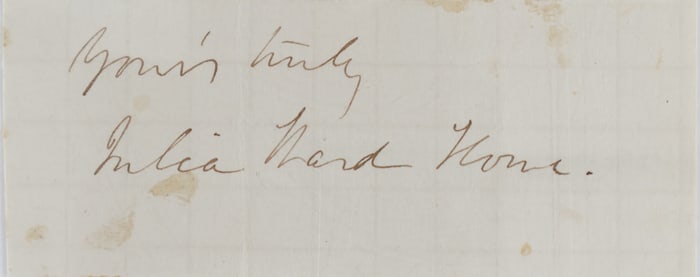 Your's truly
Julia Ward Howe.